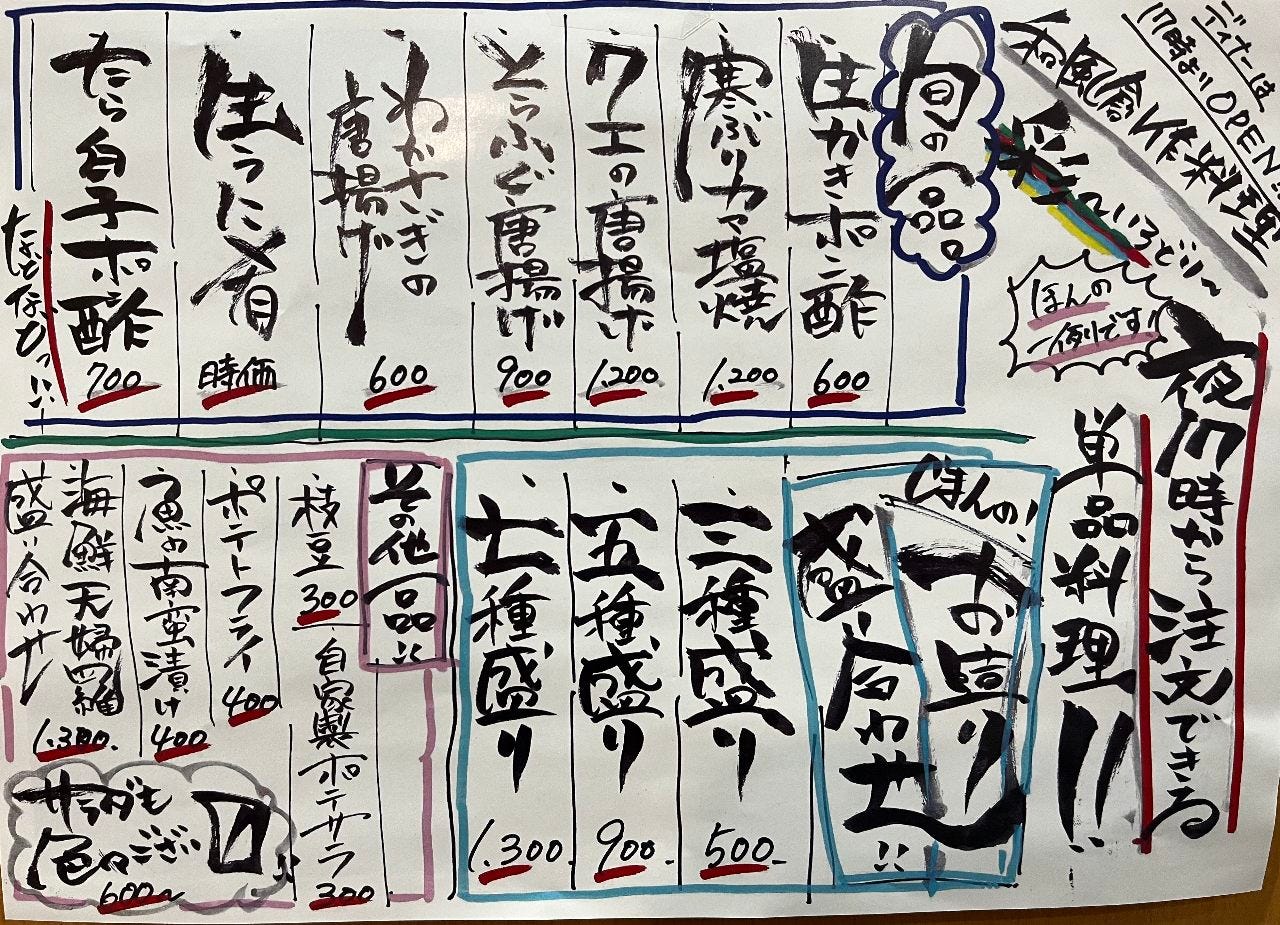 ディナーは
17時よりOPEN!
和風創作料理
彩〜いろどり〜
ほんの
一例です!
夜17時から注文できる
単品料理!!
旬の一品
生かきポン酢
600
寒ぶりカマ塩焼
1.200
クエの唐揚げ
1.200
とらふぐ唐揚げ
900
わかさぎの
唐揚げ
600
生うに肴
時価
たら白子ポン酢
700
などなどっ!!
じまんの!
お造り
盛り合わせ!!
三種盛り
500
五種盛り
900
七種盛り
1.300
その他一品!!
枝豆
300
自家製ポテサラ
300
ポテトフライ
400
魚の南蛮漬け
400
海鮮天婦羅
盛り合わせ
1.300
サラダも
色々ござ〼!!
600〜